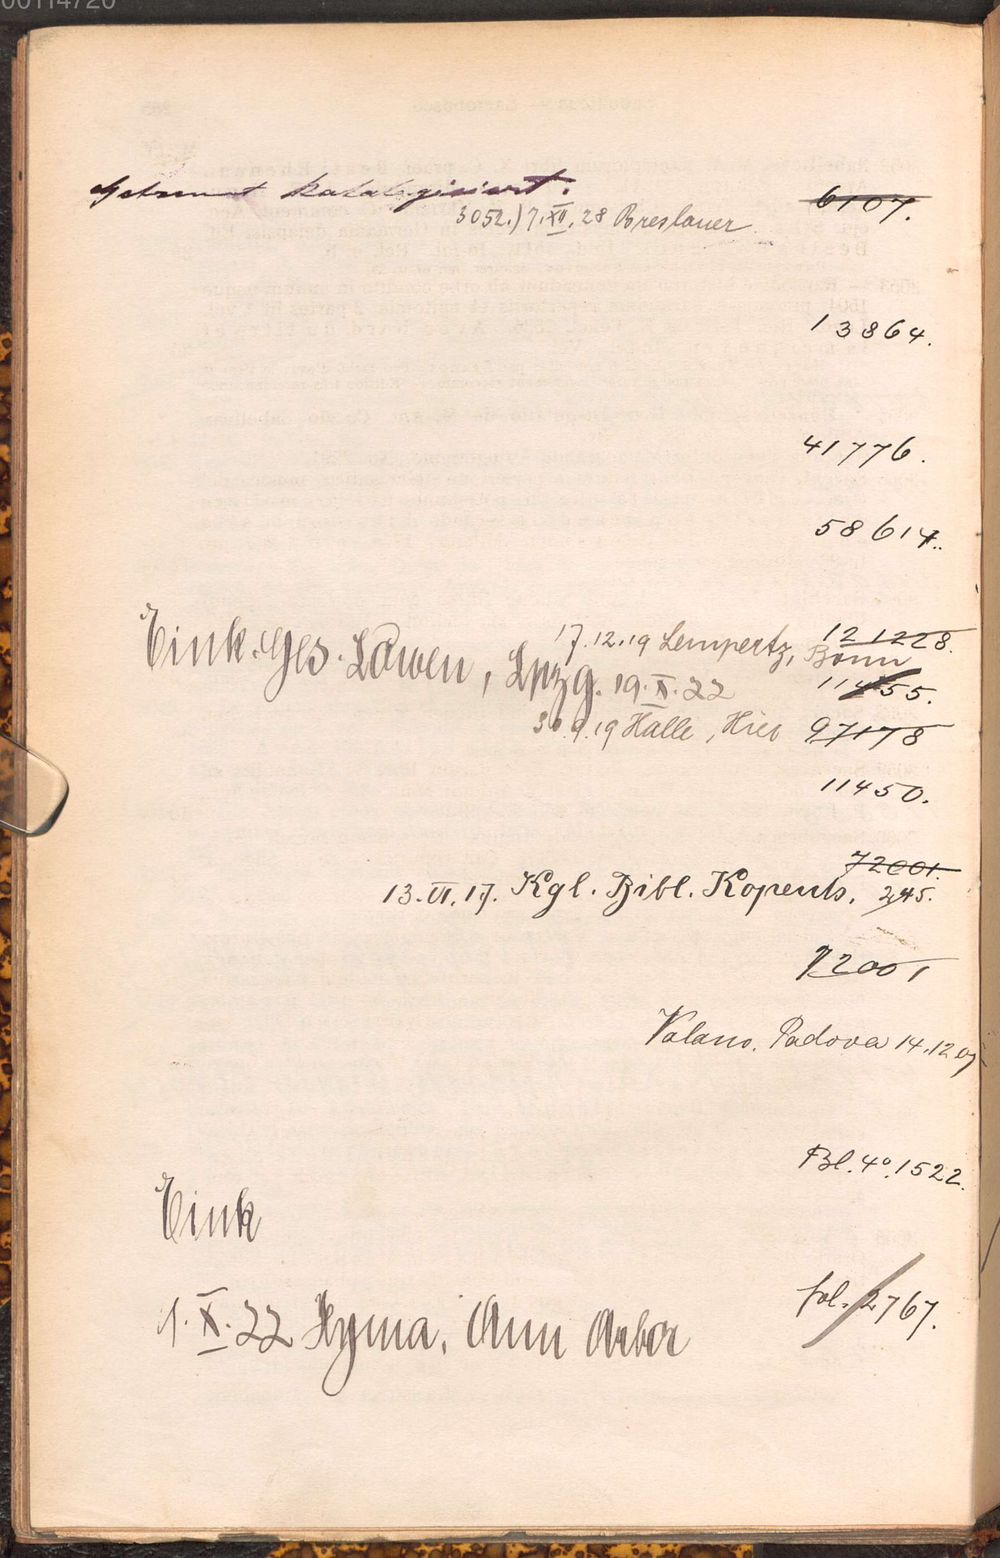 00114720
Getrennt katalogisiert.
6107.
3052.) 7.XII.28 Breslauer
13864.
41776.
58614.
17.12.19 Lempertz, Bonn
121228.
Eink. Ges. Löwen, Lpzg. 19.X.22
11455.
30.9.19 Halle, Hier 97178
11450.
72001.
13.VI.17. Kgl. Bibl. Kopenh. 245.
72001
Padova 14.12.07
Bl. 4°. 1522.
Eink
fol. 2767.
1.X.22 Hyma, Ann Arbor